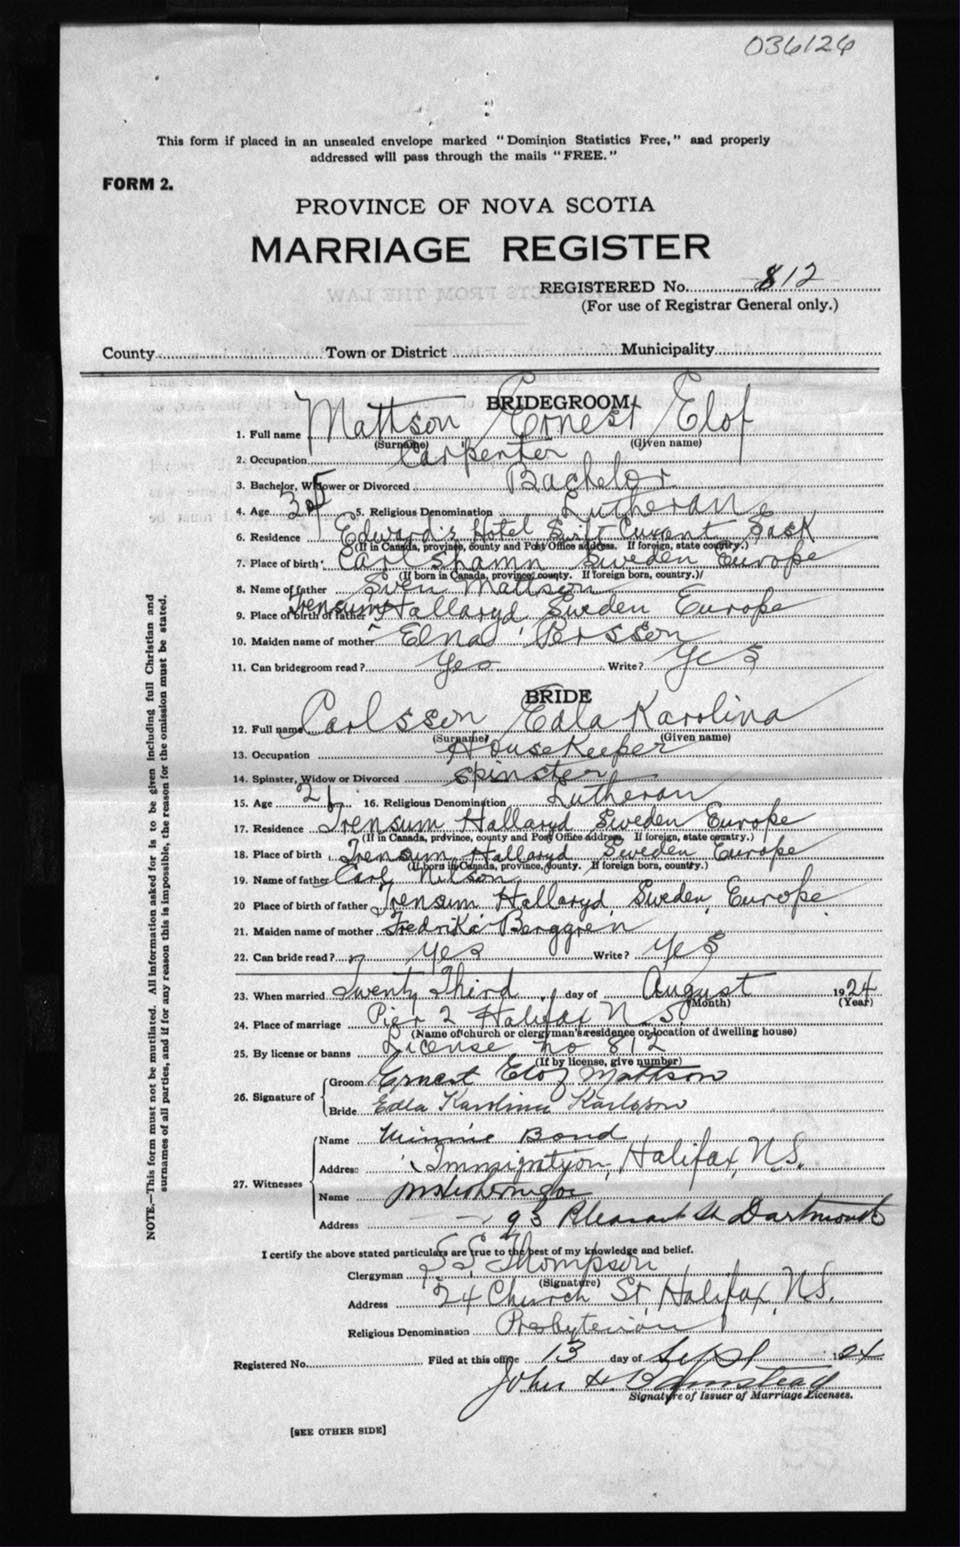 036126
This form if placed in an unsealed envelope marked "Dominion Statistics Free," and properly
addressed will pass through the mails "FREE."
FORM 2.
PROVINCE OF NOVA SCOTIA
MARRIAGE REGISTER
REGISTERED No. 812
(For use of Registrar General only.)
County Town or District Municipality
BRIDEGROOM
1. Full name Mattson Ernest Elof
(Surname) (Given name)
2. Occupation Carpenter
3. Bachelor, Widower or Divorced Bachelor
4. Age 5. Religious Denomination Lutheran
6. Residence Edward's Hotel Swift Current Sask
(If in Canada, province, county and Post Office address. If foreign, state country.)
7. Place of birth Carlshamn Sweden Europe
(If born in Canada, province, county. If foreign born, country.)
8. Name of father Sven Mattson
9. Place of birth of father Trensum Hallaryd Sweden Europe
10. Maiden name of mother Elna Persson
11. Can bridegroom read? Yes Write? Yes
BRIDE
12. Full name Carlsson Edla Karolina
(Surname) (Given name)
13. Occupation Housekeeper
14. Spinster, Widow or Divorced spinster
15. Age 26 16. Religious Denomination Lutheran
17. Residence Trensum Hallaryd Sweden Europe
(If in Canada, province, county and Post Office address. If foreign, state country.)
18. Place of birth Trensum Hallaryd Sweden Europe
(If born in Canada, province, county. If foreign born, country.)
19. Name of father Carl Nilson
20 Place of birth of father Trensum Hallaryd, Sweden, Europe
21. Maiden name of mother Fredrika Berggren
22. Can bride read? yes Write? yes
23. When married Twenty Third day of August 1924
(Month) (Year)
24. Place of marriage Pier 2 Halifax N.S.
(Name of church or clergyman's residence or location of dwelling house)
25. By license or banns License no 812
(If by license, give number)
26. Signature of Groom Ernest Elof Mattson
Bride Edla Karolina Karlsson
27. Witnesses Name Minnie Bond
Address Immigration, Halifax, N.S.
Name
Address 93 Pleasant St Dartmouth
I certify the above stated particulars are true to the best of my knowledge and belief.
Clergyman Thompson
(Signature)
Address 24 Church St, Halifax, N.S.
Religious Denomination Presbyterian
Registered No. Filed at this office 13 day of Sept 1924
John H. Barnstead
Signature of Issuer of Marriage Licenses.
[SEE OTHER SIDE]
NOTE.—This form must not be mutilated. All information asked for is to be given including full Christian and
surnames of all parties, and if for any reason this is impossible, the reason for the omission must be stated.